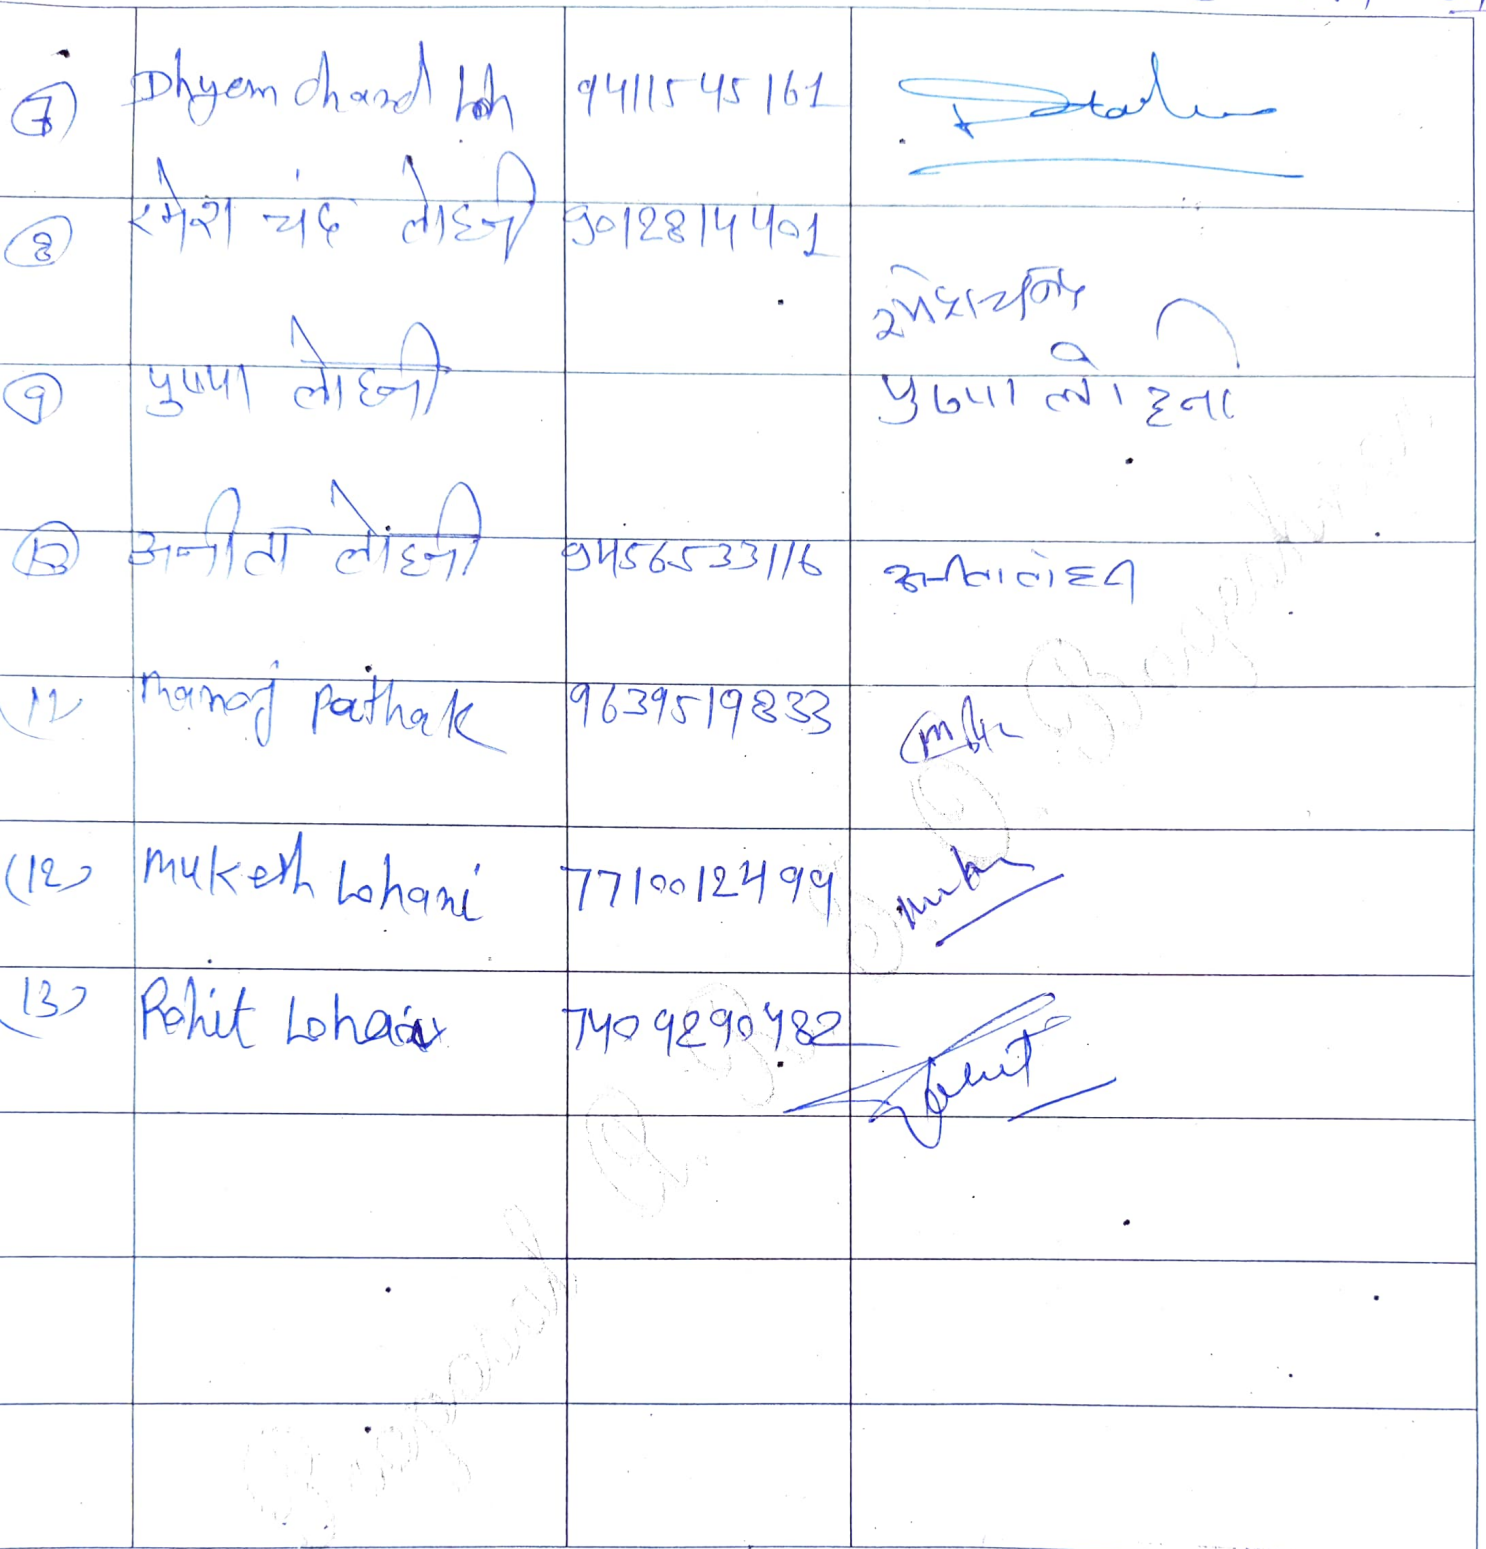 7 Dhyem chand loh 9411545161
8 रमेश चंद लोहनी 9012814401
रमेश चन्द्र
9 पुष्पा लोहनी पुष्पा लोहनी
10 अनीता लोहनी 9456533116 अनीता लोहनी
11 Manoj Pathak 9639519833
(12) Mukesh Lohani 7710012499
(13) Rohit Lohani 7409290482 Rohit